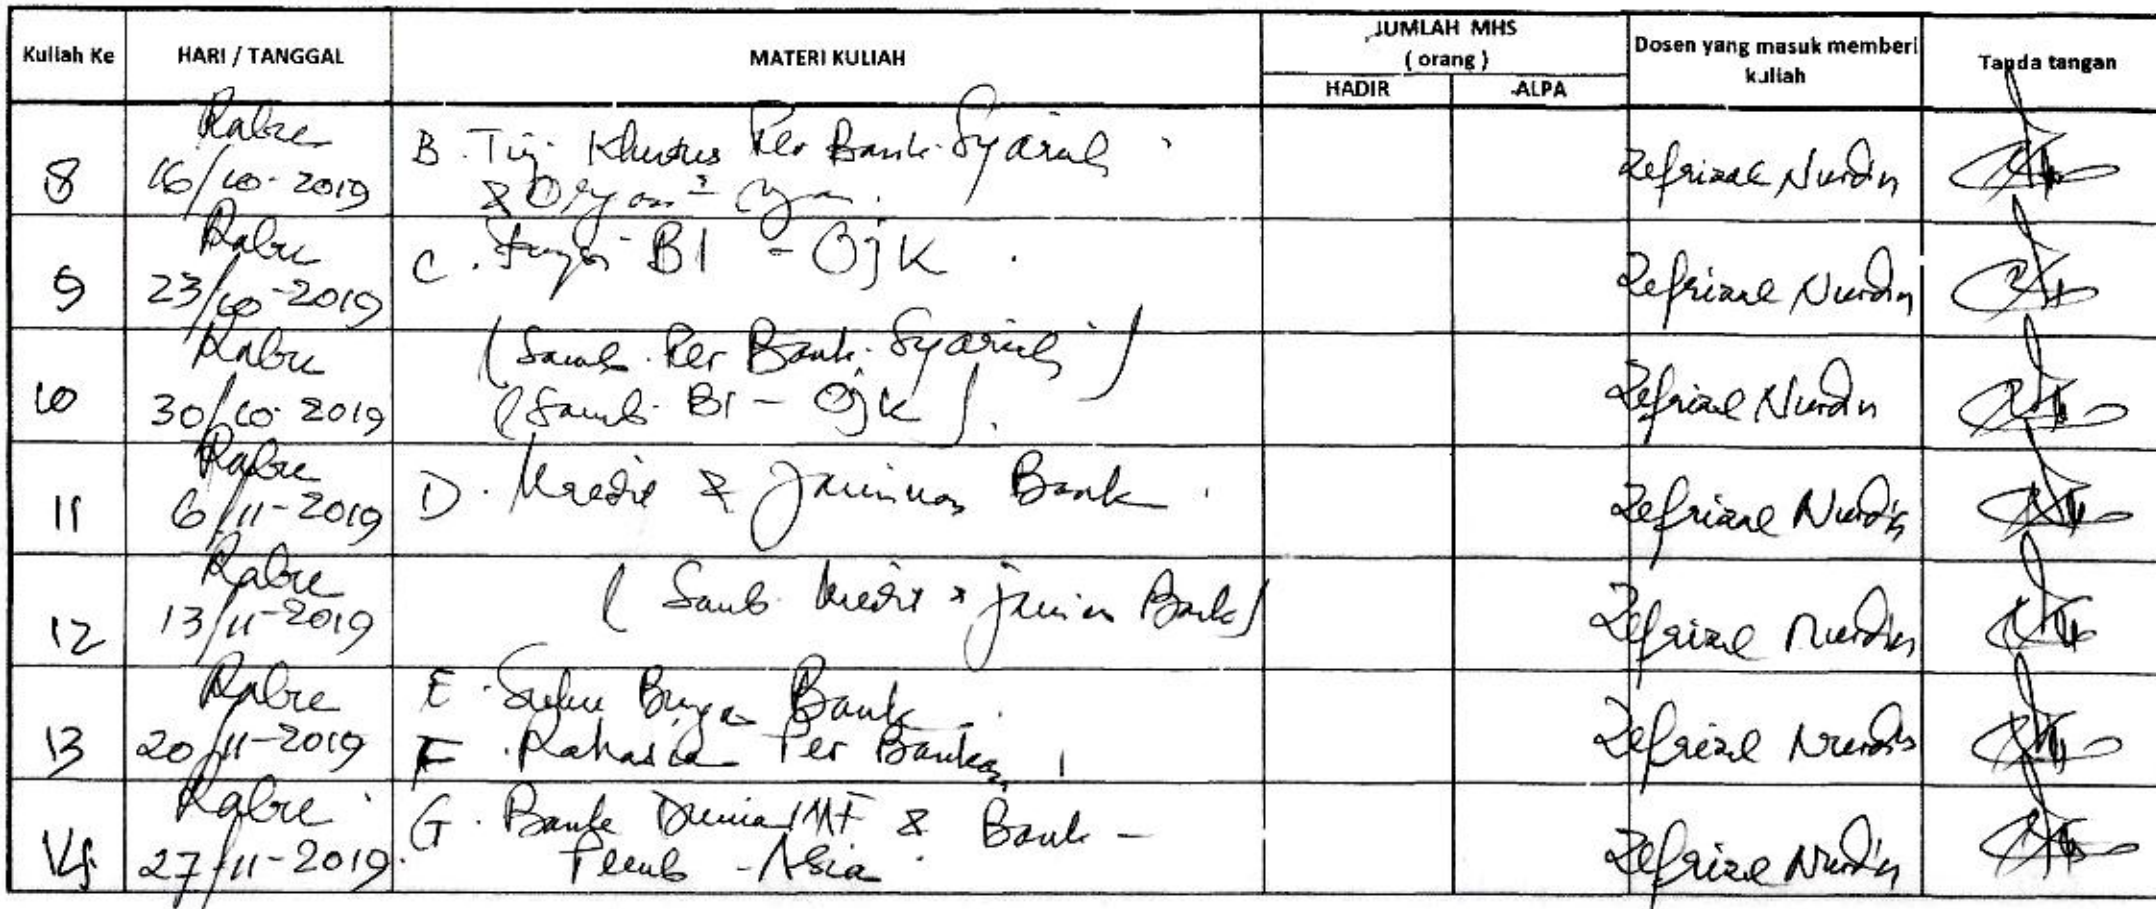 Kuliah Ke HARI / TANGGAL MATERI KULIAH JUMLAH MHS ( orang ) HADIR ALPA Dosen yang masuk memberi kuliah Tanda tangan
8 Rabu 16/10-2019 B. Tinj. Khusus Per Bank. Syariah
&
Zefrizal Nurdin
9 Rabu 23/10-2019 C. BI - OJK.
Zefrizal Nurdin
10 Rabu 30/10-2019 (Samb. Per Bank. Syariah)
(Samb. BI - OJK).
Zefrizal Nurdin
11 Rabu 6/11-2019 D. Kredit & Jaminan Bank.
Zefrizal Nurdin
12 Rabu 13/11-2019 (Samb. Kredit & Jaminan Bank)
Zefrizal Nurdin
13 Rabu 20/11-2019 E. Suku Bunga Bank.
F. Rahasia Per Bankan
Zefrizal Nurdin
14 Rabu 27/11-2019. G. Bank Dunia IMF & Bank -
Pemb - Asia.
Zefrizal Nurdin